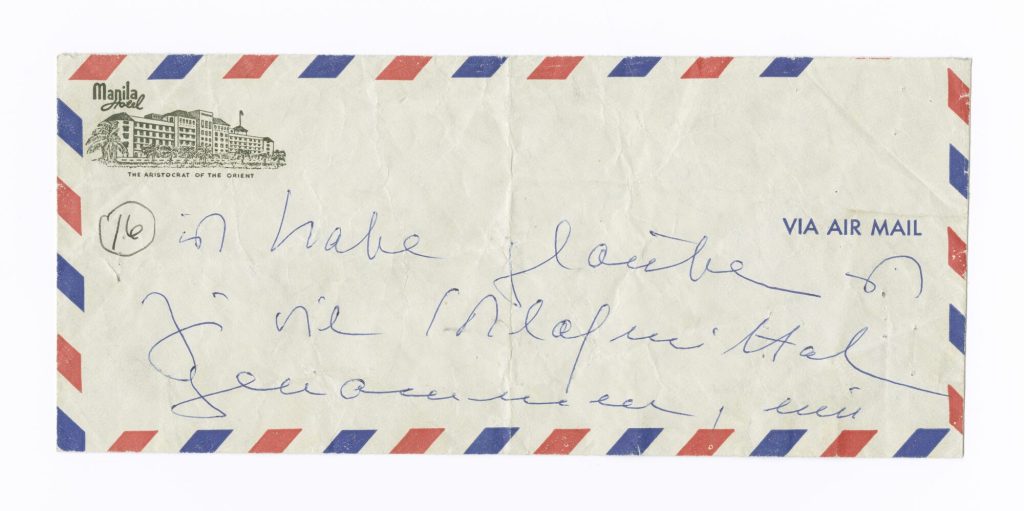 Manila
Hotel
THE ARISTOCRAT OF THE ORIENT
VIA AIR MAIL
16
ich habe glaube ich
zu viel Schlafmittel
genommen,